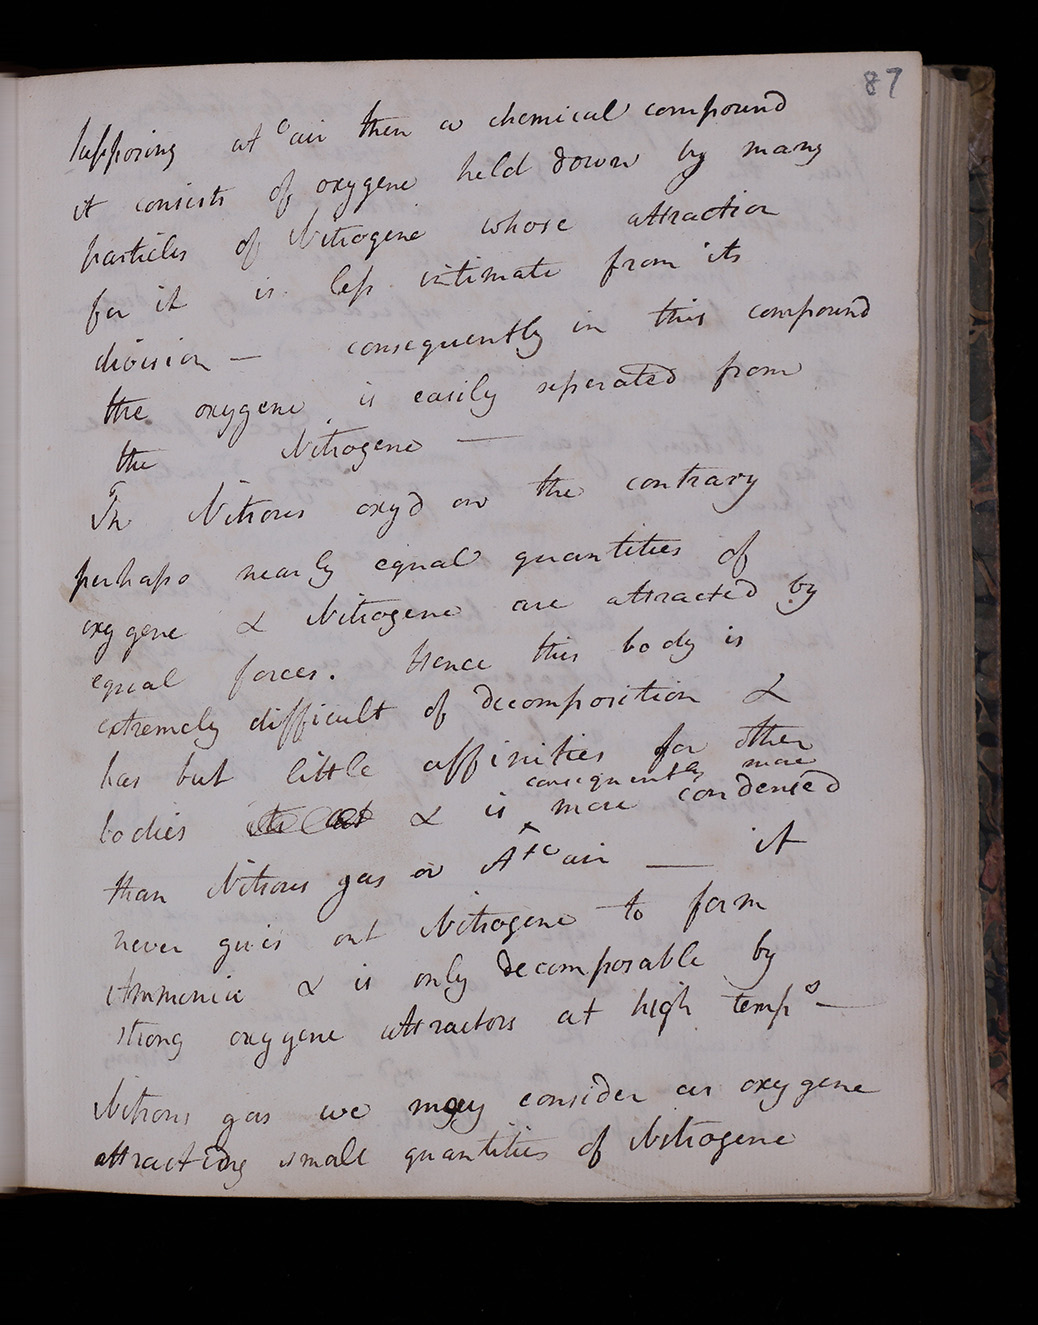 87
Supposing at c air then a chemical compound
it consists of oxygene held down by many
particles of Nitrogene whose attraction
for it is less intimate from its
division — consequently in this compound
the oxygene is easily seperated from
the Nitrogene —
In Nitrous oxyd on the contrary
perhaps nearly equal quantities of
oxygene & Nitrogene are attracted by
equal forces. Hence this body is
extremely difficult of decomposition &
has but little affinities for other
consequently more
bodies & is more condensed
than Nitrous gas or Atc air — it
never gives out Nitrogene to form
Ammonia & is only decomposable by
strong oxygene attractors at high temps —
Nitrous gas we may consider as oxygene
attracting small quantities of Nitrogene